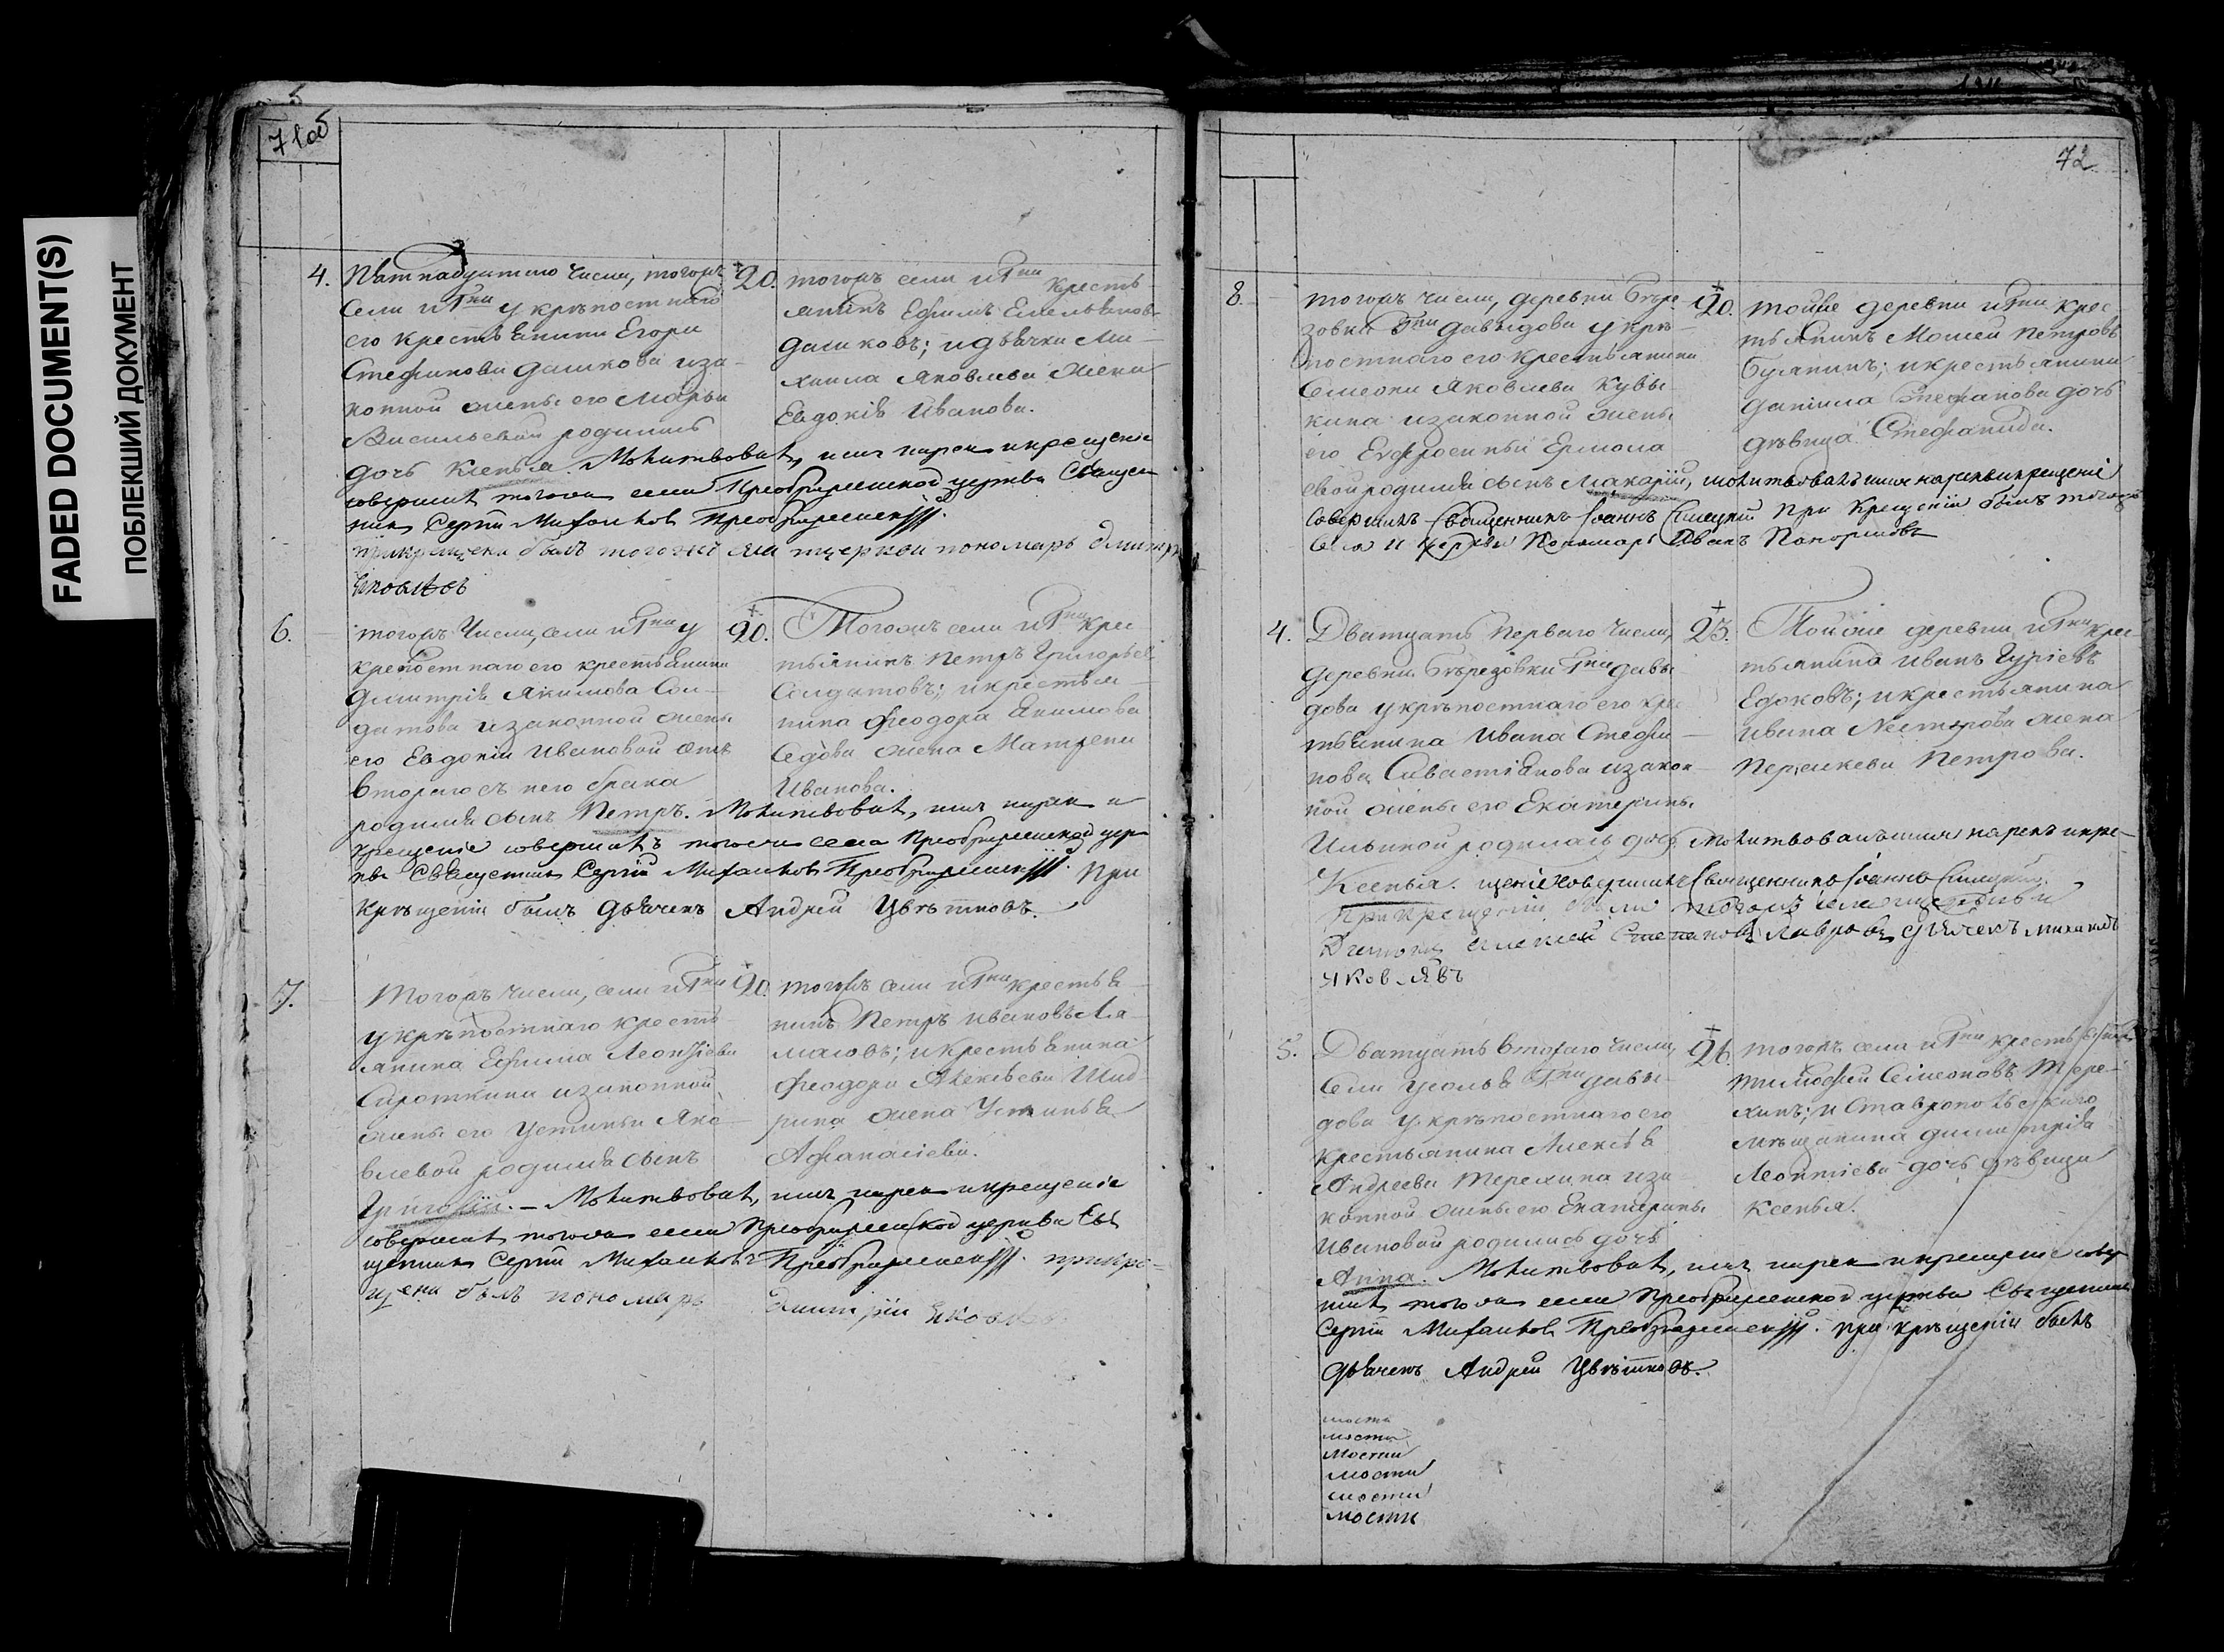 FADED DOCUMENT(S)
ПОБЛЕКШИЙ ДОКУМЕНТ
71об
4.
Пятнадцатаго числа, тогожъ
села и Гна у крѣпостнаго
его крестьянина Егора
Стефанова Дашкова и за-
конной жены его Марьи
Васильевой родилась
дочь Ксенья. Молитвовалъ, имя нарекъ и крещеніе
совершилъ тогожъ села Преображенской церкви Священ
никъ Сергiй Михайловъ Преображенскій.
при крещени былъ тогоже церкви пономарь Дмитри
Яковлевъ
20.
тогожъ села и Гна кресть
янинъ Ефимъ Емельянов
Дашковъ; и дьячка Ми
хаила Яковлева жена
Евдокія Иванова.
6.
тогожъ числа, села и Гна у
крепостнаго его крестьянина
Димитрія Якимова Сол-
датова и законной жены
его Евдокіи Ивановой отъ
втораго съ него брака
родился сынъ Петръ. Молитвовалъ, имя нарекъ и
крещеніе совершилъ тогожъ села Преображенской цер
кви Священникъ Сергій Михайловъ Преображенскій. При
крѣщеніи былъ дьячекъ Андрей Цвѣтковъ.
20.
Тогожъ села и Гна крес
тьянинъ Петръ Григорьев
Солдатовъ; и крестья
нина Феодора Акимова
Седова жена Матрена
Иванова.
7.
Тогожъ числа, села и Гна
у крѣпостнаго кресть
янина Ефима Леонтіева
Сироткина и законной
жены его Устиньи Яко
влевой родился сынъ
Григорій. – Молитвовалъ, имя нарекъ и крещеніе
совершилъ тогожъ села Преображенской церкви Свя
щенникъ Сергій Михайловъ Преображенскій. при кре-
щени былъ пономарь Дмитрій Яковлев
20.
тогожъ села и Гна крестья
нинъ Петръ Ивановъ
и крестьянина
Феодора Алексѣева
жена Устинья
Афанасіева.
72
8.
тогожъ числа, деревни Бѣре
зовки Гна Давыдова у крѣ
постнаго его крестьянина
Симеона Яковлева Кувы
кина и законной жены
его Евфросиньи Ермола
евой родился сынъ Макарій, молитвовалъ имя нарекъ и крещеніе
совершилъ Священникъ Іоаннъ При крещеніи былъ тогожъ
села и церкви Пономарь Иванъ
20.
тойже деревни и Гна крес
тьянинъ Мосей Петровъ
Булянинъ; и крестьянина
Данила Стефанова дочь
дѣвица Стефанида.
4.
Дватцать перваго числа,
деревни Бѣрезовки Гна Давы
дова у крѣпостнаго его крес
тьянина Ивана Стефа
нова Сивастіянова и закон
ной жены его Екатерины
Ильиной родилась дочь Молитвовалъ имя нарекъ и кре-
Ксенья. щеніе совершилъ Священникъ Іоаннъ
При крещеніи были тогожъ села и церкви
Диаконъ Алексей Степановъ Лавровъ дьячекъ Михаилъ
Яковлявъ
23.
Тойже деревни и Гна крес
тьянина Иванъ Гуріевъ
Едоковъ; и крестьянина
Ивана Нестерова жена
Перскева Петрова.
5.
Дватцать втораго числа,
села Усолья Гна Давы
дова у крѣпостнаго его
крестьянина Алексѣя
Андреева Терехина и за
конной жены его Екатерины
Ивановой родилась дочь
Анна. Молитвовалъ, имя нарекъ и крещеніе совер
шилъ тогожъ села Преображенской церкви Священникъ
Сергій Михайловъ Преображенскій. при крѣщеніи былъ
дьячекъ Андрей Цвѣтковъ.
тогожъ села и Гна крестьянин
Тимофей Симеоновъ Тере-
хинъ; и Ставропольскаго
мѣщанина Димитрія
Леонтіева дочь дѣвица
Ксенья.
мости
мости
мости
мости
мости
мости